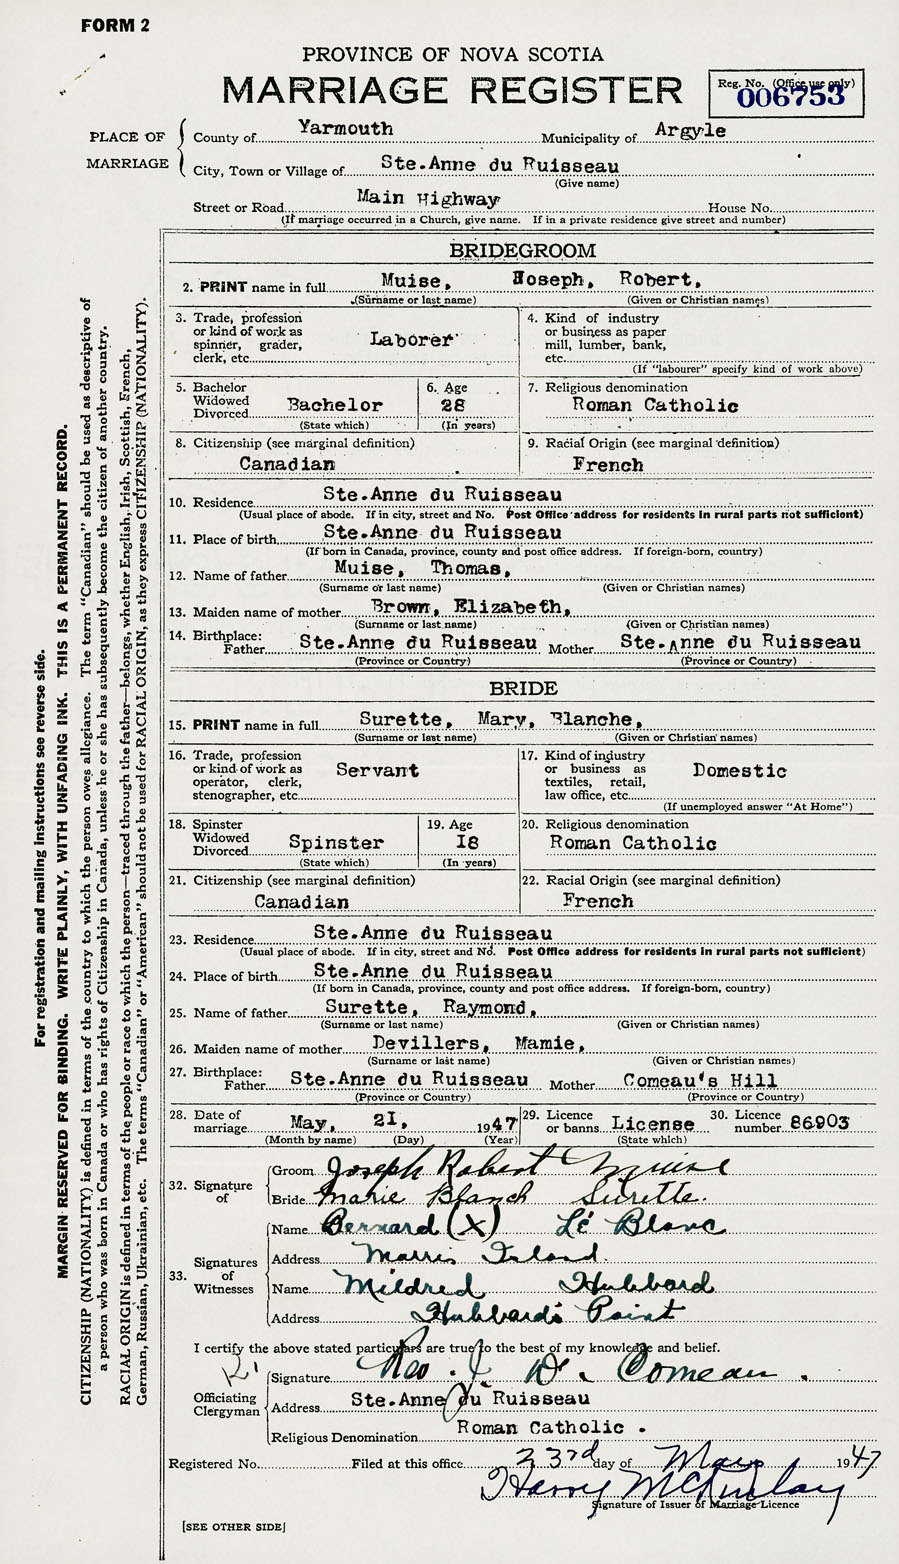 FORM 2
PROVINCE OF NOVA SCOTIA
MARRIAGE REGISTER
Reg. No. (Office use only)
006753
PLACE OF MARRIAGE
County of Yarmouth Municipality of Argyle
City, Town or Village of Ste.Anne du Ruisseau
(Give name)
Street or Road Main Highway House No.
(If marriage occurred in a Church, give name. If in a private residence give street and number)
BRIDEGROOM
2. PRINT name in full Muise, Joseph, Robert,
(Surname or last name) (Given or Christian names)
3. Trade, profession or kind of work as spinner, grader, clerk, etc. Laborer
4. Kind of industry or business as paper mill, lumber, bank, etc.
(If "labourer" specify kind of work above)
5. Bachelor Widowed Divorced Bachelor
(State which)
6. Age 28
(In years)
7. Religious denomination
Roman Catholic
8. Citizenship (see marginal definition)
Canadian
9. Racial Origin (see marginal definition)
French
10. Residence Ste.Anne du Ruisseau
(Usual place of abode. If in city, street and No. Post Office address for residents in rural parts not sufficient)
11. Place of birth Ste.Anne du Ruisseau
(If born in Canada, province, county and post office address. If foreign-born, country)
12. Name of father Muise, Thomas,
(Surname or last name) (Given or Christian names)
13. Maiden name of mother Brown, Elizabeth,
(Surname or last name) (Given or Christian names)
14. Birthplace: Father Ste.Anne du Ruisseau Mother Ste.Anne du Ruisseau
(Province or Country) (Province or Country)
BRIDE
15. PRINT name in full Surette, Mary, Blanche,
(Surname or last name) (Given or Christian names)
16. Trade, profession or kind of work as operator, clerk, stenographer, etc. Servant
17. Kind of industry or business as textiles, retail, law office, etc. Domestic
(If unemployed answer "At Home")
18. Spinster Widowed Divorced Spinster
(State which)
19. Age I8
(In years)
20. Religious denomination
Roman Catholic
21. Citizenship (see marginal definition)
Canadian
22. Racial Origin (see marginal definition)
French
23. Residence Ste.Anne du Ruisseau
(Usual place of abode. If in city, street and No. Post Office address for residents in rural parts not sufficient)
24. Place of birth Ste.Anne du Ruisseau
(If born in Canada, province, county and post office address. If foreign-born, country)
25. Name of father Surette, Raymond,
(Surname or last name) (Given or Christian names)
26. Maiden name of mother Devillers, Mamie,
(Surname or last name) (Given or Christian names)
27. Birthplace: Father Ste.Anne du Ruisseau Mother Comeau's Hill
(Province or Country) (Province or Country)
28. Date of marriage May, 2I, 1947
(Month by name) (Day) (Year)
29. Licence or banns License
(State which)
30. Licence number 86903
32. Signature of
Groom Joseph Robert Muise
Bride Marie Blanch Surette.
33. Signatures of Witnesses
Name Bernard (X) Le Blanc
Address Morris Island.
Name Mildred Hubbard
Address Hubbards Point
I certify the above stated particulars are true to the best of my knowledge and belief.
Officiating Clergyman
Signature Rev. J. D. Comeau.
Address Ste.Anne du Ruisseau
Religious Denomination Roman Catholic.
Registered No. Filed at this office 23rd day of May 1947
Harry McKinlay
Signature of Issuer of Marriage Licence
[SEE OTHER SIDE]
For registration and mailing instructions see reverse side.
MARGIN RESERVED FOR BINDING. WRITE PLAINLY, WITH UNFADING INK. THIS IS A PERMANENT RECORD.
CITIZENSHIP (NATIONALITY) is defined in terms of the country to which the person owes allegiance. The term "Canadian" should be used as descriptive of
a person who was born in Canada or who has rights of Citizenship in Canada, unless he or she has subsequently become the citizen of another country.
RACIAL ORIGIN is defined in terms of the people or race to which the person—traced through the father—belongs, whether English, Irish, Scottish, French,
German, Russian, Ukrainian, etc. The terms "Canadian" or "American" should not be used for RACIAL ORIGIN, as they express CITIZENSHIP (NATIONALITY).